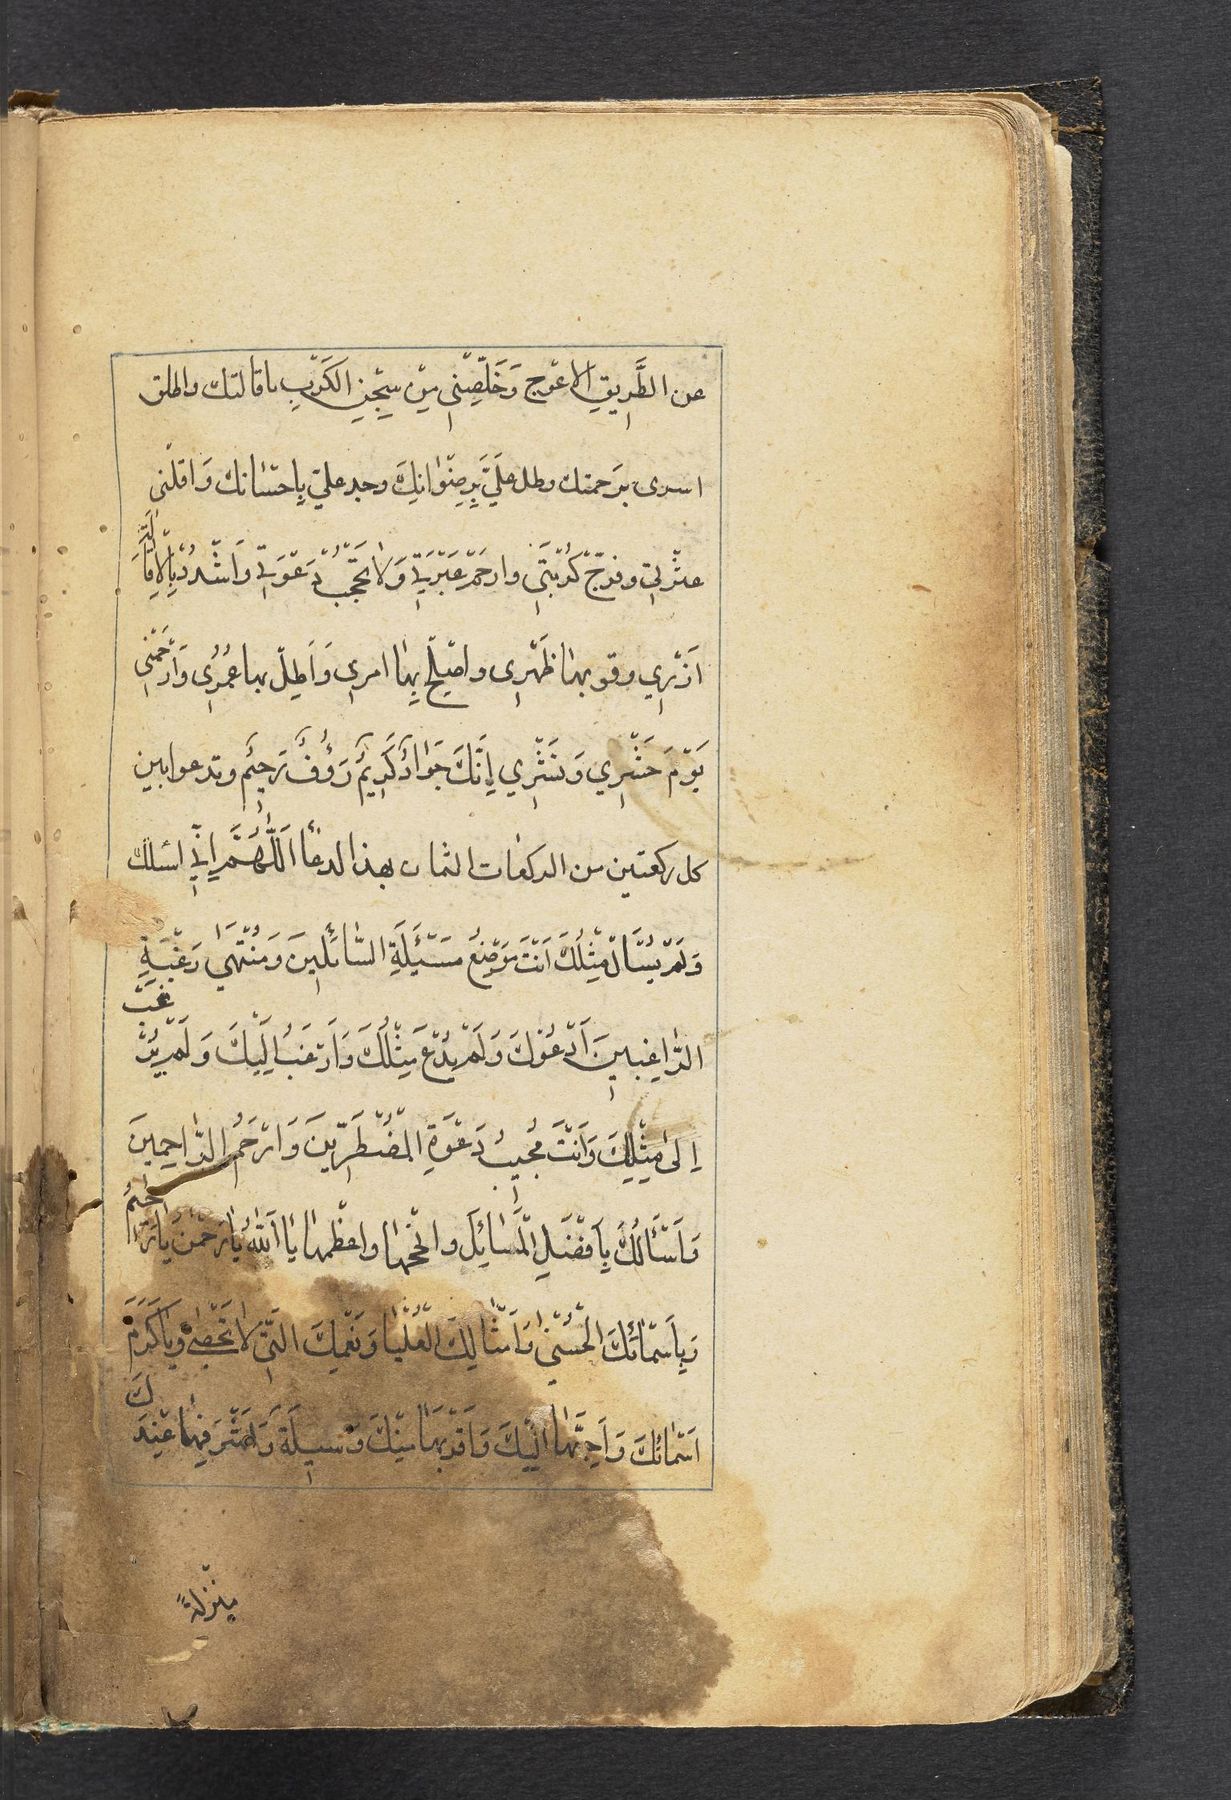 عن الطَّرِيقِ الاعْوجِ وَخَلِّصْنِي مِنْ سِجْنِ الكَرْبِ باقالتك واطلق
اسرى برَحمتك وطل عَلَيَّ بِرِضْوَانِكَ وجد عليّ بِاِحسَانك وَاقلْنى
عثْرتِي وفرّجْ كُرْبَتَي وارحَمْ عَبْرَتِي وَلا تَحْجُبْ دَعْوَتِي وَاشْدُدْ بِالاِقَالَةِ
اَزْرِي وقو بهَا ظَهْرِى واصْلِحْ بِهَا امرى وَاَطِلْ بها عُمُرِى وَارْحَمْنِى
يَوْمَ حَشْرِي وَنَشْرِي اِنَّكَ جَوَادٌ كَرِيمٌ رَؤُفٌ رَحِيمٌ وتدعوا بين
كل ركعتين من الركعات الثمان بهذا الدعاُ اَللَّهُمَّ اِنِّي اسئلك
وَلَمْ يُسْأَلْ مِثْلُكَ اَنْتَ مَوْضِعُ مَسْئَلَةِ السَّائلِينَ وَمُنْتَهَى رَغْبَةِ
الرَّاغِبِينَ اَدْعُوْكَ وَلَمْ يُدْعَ مِثْلُكَ وَاَرْغَبُ اِلَيْكَ وَلَمْ يُرْغَبْ
اِلىٰ مِثْلِكَ وَاَنْتَ مُجيبُ دَعْوَةِ المُضْطَرِّينَ وَاَرْحَمُ الرَّاحِمِينَ
وَاَسْأَلُكَ بِاَفْضَلِ الْمَسَائِلِ وانْجَحِهَا واعْظَمِهَا يَا اَللهُ يَا رَحْمٰنُ يَا رَحِيمُ
وَبِاَسْمَائكَ الْحُسْنىٰ وَاَمْثَالِكَ الْعُلْيَا وَنِعَمِكَ الَّتِي لا تُحْصىٰ وبِاَكْرَمِ
اَسْمَائكَ وَاَحَبِّهَا اِلَيْكَ وَاَقْرَبِهَا مِنْكَ وَسِيلَةً وَاَشْرَفِهَا عِنْدَكَ
مَنْزِلَةً